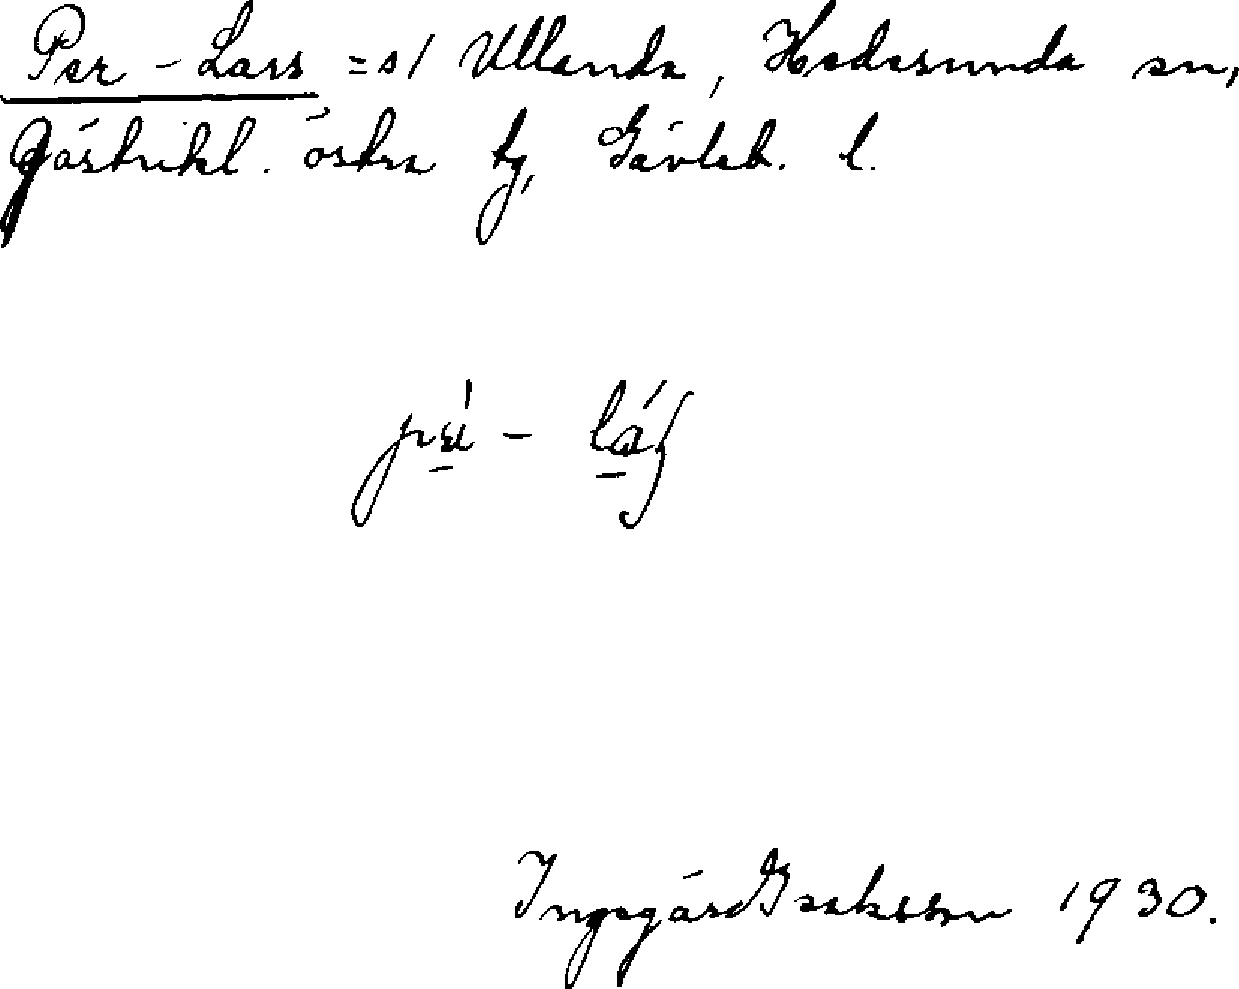 Per-Lars =s/ Ullanda, Hedesunda sn,
Gästrikl. östra tg, Gävleb. l.
Ingegärd Isaksson 1930.